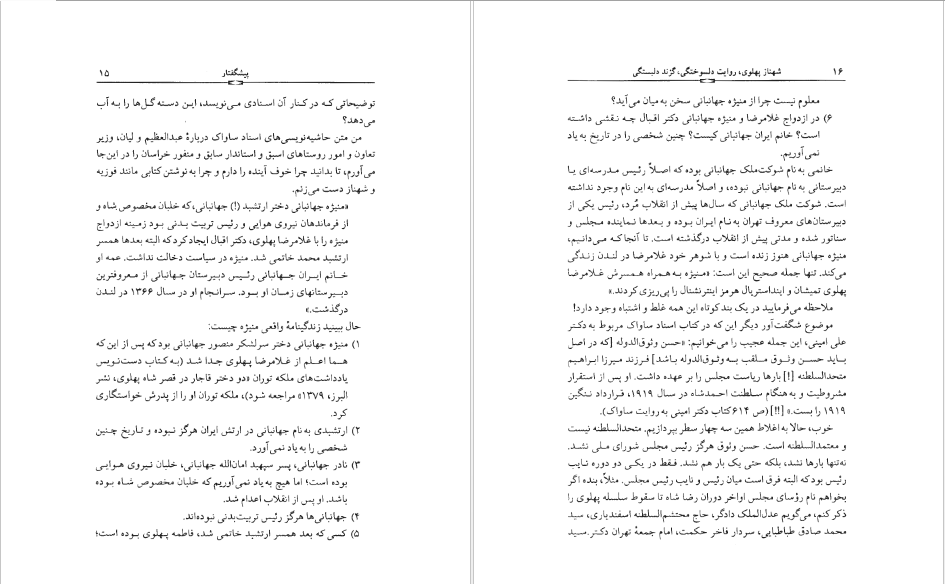 پیشگفتار ۱۵
توضیحاتی که در کنار آن اسنادی می‌نویسد، این دسته گل‌ها را به آب
می‌دهد؟
من متن حاشیه‌نویسی‌های اسناد ساواک دربارهٔ عبدالعظیم و لیان، وزیر
تعاون و امور روستاهای اسبق و استاندار سابق و منفور خراسان را در این‌جا
می‌آورم، تا بدانید چرا خوف آینده را دارم و چرا به نوشتن کتابی مانند فوزیه
و شهناز دست می‌زنم.
«منیژه جهانبانی دختر ارتشبد (!) جهانبانی، که خلبان مخصوص شاه و
از فرماندهان نیروی هوایی و رئیس تربیت بدنی بود زمینه ازدواج
منیژه را با غلامرضا پهلوی، دکتر اقبال ایجاد کرد که البته بعدها همسر
ارتشبد محمد خاتمی شد. منیژه در سیاست دخالت نداشت. عمه او
خانم ایران جهانبانی رئیس دبیرستان جهانبانی از معروفترین
دبیرستانهای زمان او بود. سرانجام او در سال ۱۳۶۶ در لندن
درگذشت.»
حال ببینید زندگینامهٔ واقعی منیژه چیست:
۱) منیژه جهانبانی دختر سرلشکر منصور جهانبانی بود که پس از این که
هما اعلم از غلامرضا پهلوی جدا شد (به کتاب دست‌نویس
یادداشت‌های ملکه توران «دو دختر قاجار در قصر شاه پهلوی، نشر
البرز، ۱۳۷۹» مراجعه شود)، ملکه توران او را از پدرش خواستگاری
کرد.
۲) ارتشبدی به نام جهانبانی در ارتش ایران هرگز نبوده و تاریخ چنین
شخصی را به یاد نمی‌آورد.
۳) نادر جهانبانی، پسر سپهبد امان‌الله جهانبانی، خلبان نیروی هوایی
بوده است؛ اما هیچ به یاد نمی‌آوریم که خلبان مخصوص شاه بوده
باشد. او پس از انقلاب اعدام شد.
۴) جهانبانی‌ها هرگز رئیس تربیت‌بدنی نبوده‌اند.
۵) کسی که بعد همسر ارتشبد خاتمی شد، فاطمه پهلوی بوده است؛
۱۶ شهناز پهلوی، روایت دلسوختگی، گزند دلبستگی
معلوم نیست چرا از منیژه جهانبانی سخن به میان می‌آید؟
۶) در ازدواج غلامرضا و منیژه جهانبانی دکتر اقبال چه نقشی داشته
است؟ خانم ایران جهانبانی کیست؟ چنین شخصی را در تاریخ به یاد
نمی‌آوریم.
خانمی به نام شوکت‌ملک جهانبانی بوده که اصلاً رئیس مدرسه‌ای یا
دبیرستانی به نام جهانبانی نبوده، و اصلاً مدرسه‌ای به این نام وجود نداشته
است. شوکت ملک جهانبانی که سال‌ها پیش از انقلاب مُرد، رئیس یکی از
دبیرستان‌های معروف تهران به نام ایران بوده و بعدها نماینده مجلس و
سناتور شده و مدتی پیش از انقلاب درگذشته است. تا آنجا که می‌دانیم،
منیژه جهانبانی هنوز زنده است و با شوهر خود غلامرضا در لندن زندگی
می‌کند. تنها جمله صحیح این است: «منیژه به همراه همسرش غلامرضا
پهلوی تمیشان و اینداستریال هرمز اینترنشنال را پی‌ریزی کردند.»
ملاحظه می‌فرمایید در یک بند کوتاه این همه غلط و اشتباه وجود دارد!
موضوع شگفت‌آور دیگر این که در کتاب اسناد ساواک مربوط به دکتر
علی امینی، این جمله عجیب را می‌خوانیم: «حسن وثوق‌الدوله [که در اصل
باید حسن وثوق ملقب به وثوق‌الدوله باشد] فرزند میرزا ابراهیم
متحدالسلطنه [!] بارها ریاست مجلس را بر عهده داشت. او پس از استقرار
مشروطیت و به هنگام سلطنت احمدشاه در سال ۱۹۱۹، قرارداد ننگین
۱۹۱۹ را بست.» [!!] (ص ۶۱۴ کتاب دکتر امینی به روایت ساواک).
خوب، حالا به اغلاط همین سه چهار سطر بپردازیم. متحدالسلطنه نیست
و معتمدالسلطنه است. حسن وثوق هرگز رئیس مجلس شورای ملی نشد.
نه‌تنها بارها نشد، بلکه حتی یک بار هم نشد. فقط در یکی دو دوره نایب
رئیس بود که البته فرق است میان رئیس و نایب رئیس مجلس. مثلاً، بنده اگر
بخواهم نام رؤسای مجلس اواخر دوران رضا شاه تا سقوط سلسله پهلوی را
ذکر کنم، می‌گویم عدل‌الملک دادگر، حاج محتشم‌السلطنه اسفندیاری، سید
محمد صادق طباطبایی، سردار فاخر حکمت، امام جمعهٔ تهران دکتر سید